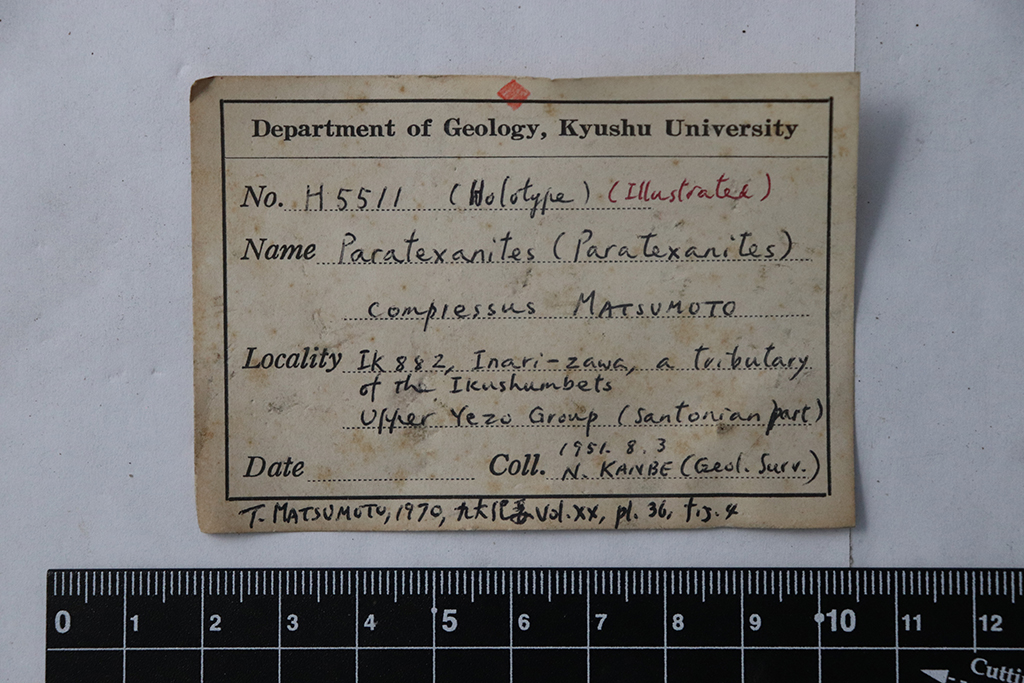 Department of Geology, Kyushu University
No. H 5511 (Holotype) (Illustrated)
Name Paratexanites (Paratexanites)
compressus MATSUMOTO
Locality Ik 882, Inari-zawa, a tributary
of the Ikushumbets
Upper Yezo Group (Santonian part)
1951. 8. 3
Date Coll. N. KANBE (Geol. Surv.)
T. MATSUMOTO, 1970, 九大 Vol. XX, pl. 36, fig. 4
0 1 2 3 4 5 6 7 8 9 10 11 12